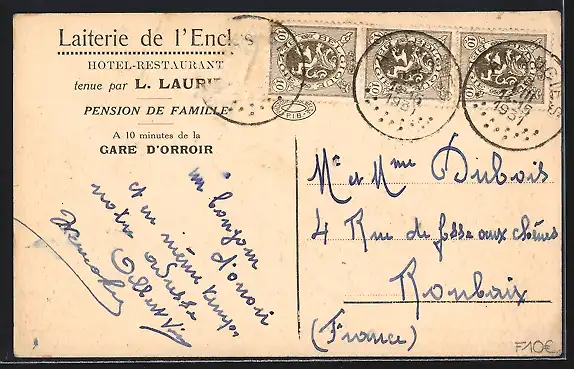 Laiterie de l'Enclus
HOTEL-RESTAURANT
tenue par L. LAURI
PENSION DE FAMILLE
A 10 minutes de la
GARE D'ORROIR
un bonjour
d'Orroir
et en même temps
notre adresse
Gilbert
Mr et Mme Dubois
4 Rue de fosse aux chênes
Roubaix
(France)
10 10 10
BELGIQUE
1931
1931
1931
P.I.B.
F10€